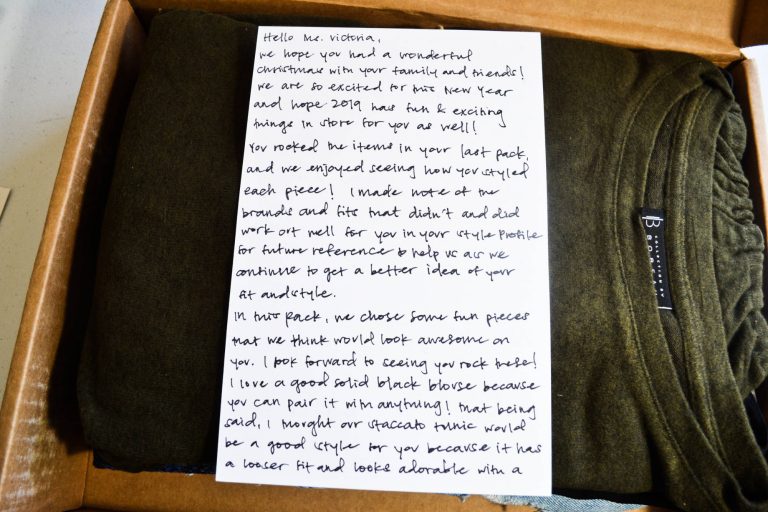 Hello Ms. Victoria,
we hope you had a wonderful
christmas with your family and friends!
we are so excited for this New Year
and hope 2019 has fun & exciting
things in store for you as well!
You rocked the items in your last pack,
and we enjoyed seeing how you styled
each piece! I made note of the
brands and fits that didn't and did
work out well for you in your style Profile
for future reference to help us as we
continue to get a better idea of your
fit and style.
In this pack, we chose some fun pieces
that we think would look awesome on
you. I look forward to seeing you rock these!
I love a good solid black blouse because
you can pair it with anything! that being
said, I thought our staccato tunic would
be a good style for you because it has
a looser fit and looks adorable with a
COLLECTION BY